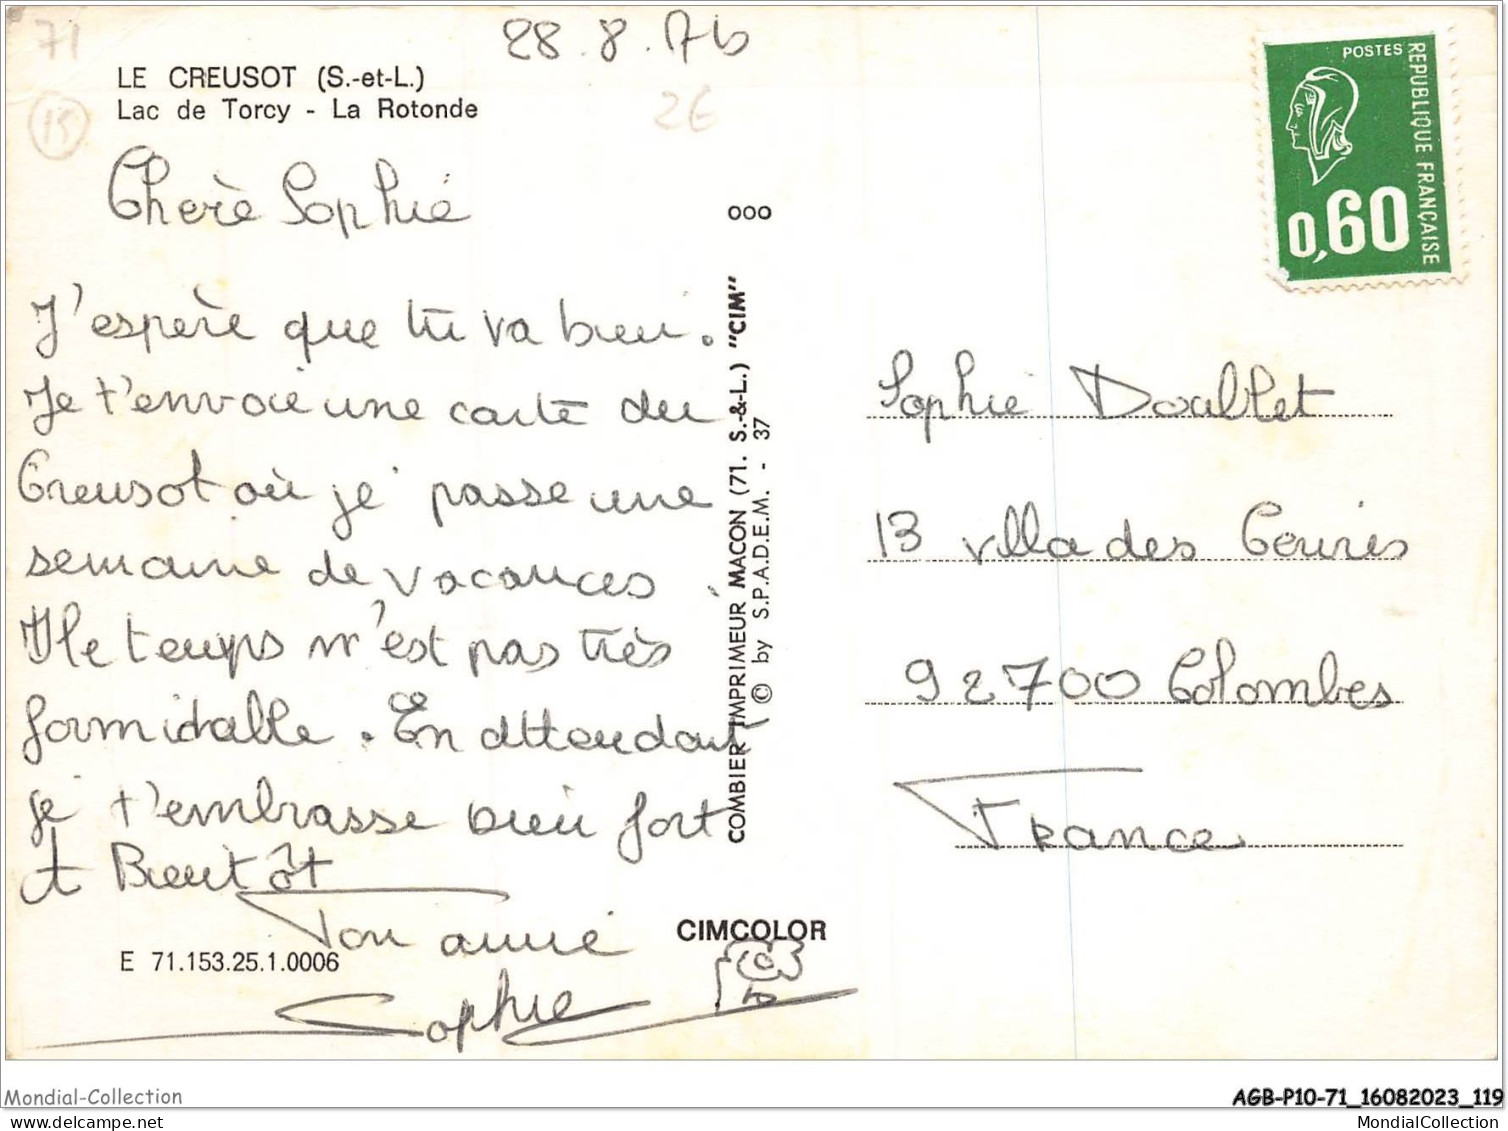 71
28.8.76
LE CREUSOT (S.-et-L.)
Lac de Torcy - La Rotonde
15
2€
Chère Sophie
J'espère que tu va bien.
Je t'envoie une carte du
Creusot où je passe une
semaine de vacances.
Ile temps n'est pas très
formidable. En attendant
je t'embrasse bien fort
A Bientôt
Ton amie
Sophie
E 71.153.25.1.0006
CIMCOLOR
ooo
COMBIER IMPRIMEUR MACON (71. S.-&-L.) "CIM"
© by S.P.A.D.E.M. - 37
POSTES
REPUBLIQUE FRANÇAISE
0,60
Sophie Doublet
13 villa des
92700 Colombes
France
Mondial-Collection
AGB-P10-71_16082023_119
MondialCollection